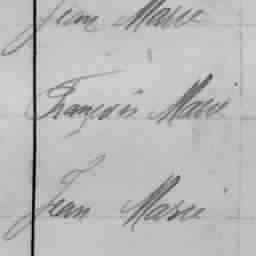 Jean Marie
François Marie
Jean Marie